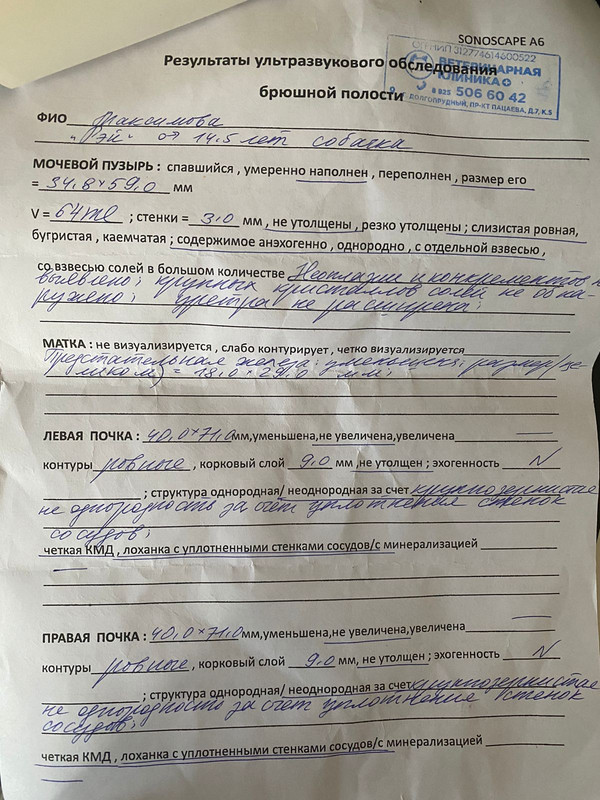 SONOSCAPE A6
ОГНИП 312774614600522
Результаты ультразвукового обследования
ВЕТЕРИНАРНАЯ
КЛИНИКА
брюшной полости
8 925 506 60 42
Г. ДОЛГОПРУДНЫЙ, ПР-КТ ПАЦАЕВА, Д.7, К.5
ФИО Максимова
"Рэй" 14,5 лет собачка
МОЧЕВОЙ ПУЗЫРЬ : спавшийся , умеренно наполнен , переполнен , размер его
= 34,8×59,0 мм
V = 64 ml ; стенки = 3,0 мм , не утолщены , резко утолщены ; слизистая ровная,
бугристая , каемчатая ; содержимое анэхогенно , однородно , с отдельной взвесью ,
со взвесью солей в большом количестве Неоплазии и конкрементов не
выявлено; крупных кристаллов солей не обна-
ружено; уретра не расширена;
МАТКА : не визуализируется , слабо контурирует , четко визуализируется
Предстательная железа: уменьшена; размер/це-
ликом) = 18,0×29,0 мм;
ЛЕВАЯ ПОЧКА : 40,0×71,0мм,уменьшена,не увеличена,увеличена
контуры ровные , корковый слой 9,0 мм ,не утолщен ; эхогенность N
; структура однородная/ неоднородная за счет крупнозернистая
не однородность за счет уплотнения стенок
сосудов;
четкая КМД , лоханка с уплотненными стенками сосудов/с минерализацией
ПРАВАЯ ПОЧКА : 40,0×71,0мм,уменьшена,не увеличена,увеличена
контуры ровные , корковый слой 9,0 мм, не утолщен ; эхогенность N
; структура однородная/ неоднородная за счет крупнозернистая
не однородность за счет уплотнение стенок
сосудов;
четкая КМД , лоханка с уплотненными стенками сосудов/с минерализацией